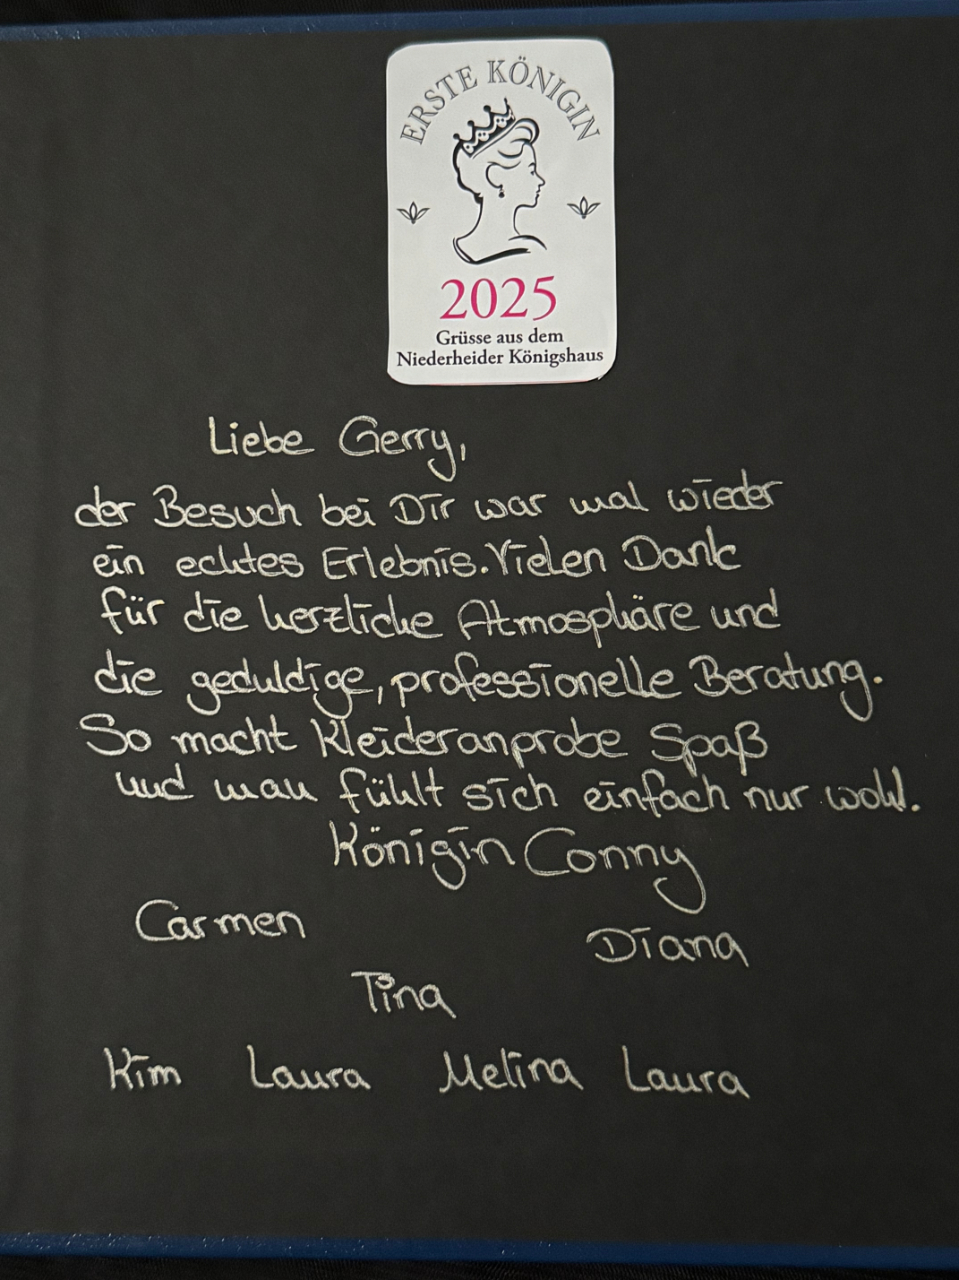 ERSTE KÖNIGIN
2025
Grüsse aus dem
Niederheider Königshaus
Liebe Gerry,
der Besuch bei Dir war mal wieder
ein echtes Erlebnis. Vielen Dank
für die herzliche Atmosphäre und
die geduldige, professionelle Beratung.
So macht Kleideranprobe Spaß
und man fühlt sich einfach nur wohl.
Königin Conny
Carmen
Diana
Tina
Kim Laura Melina Laura